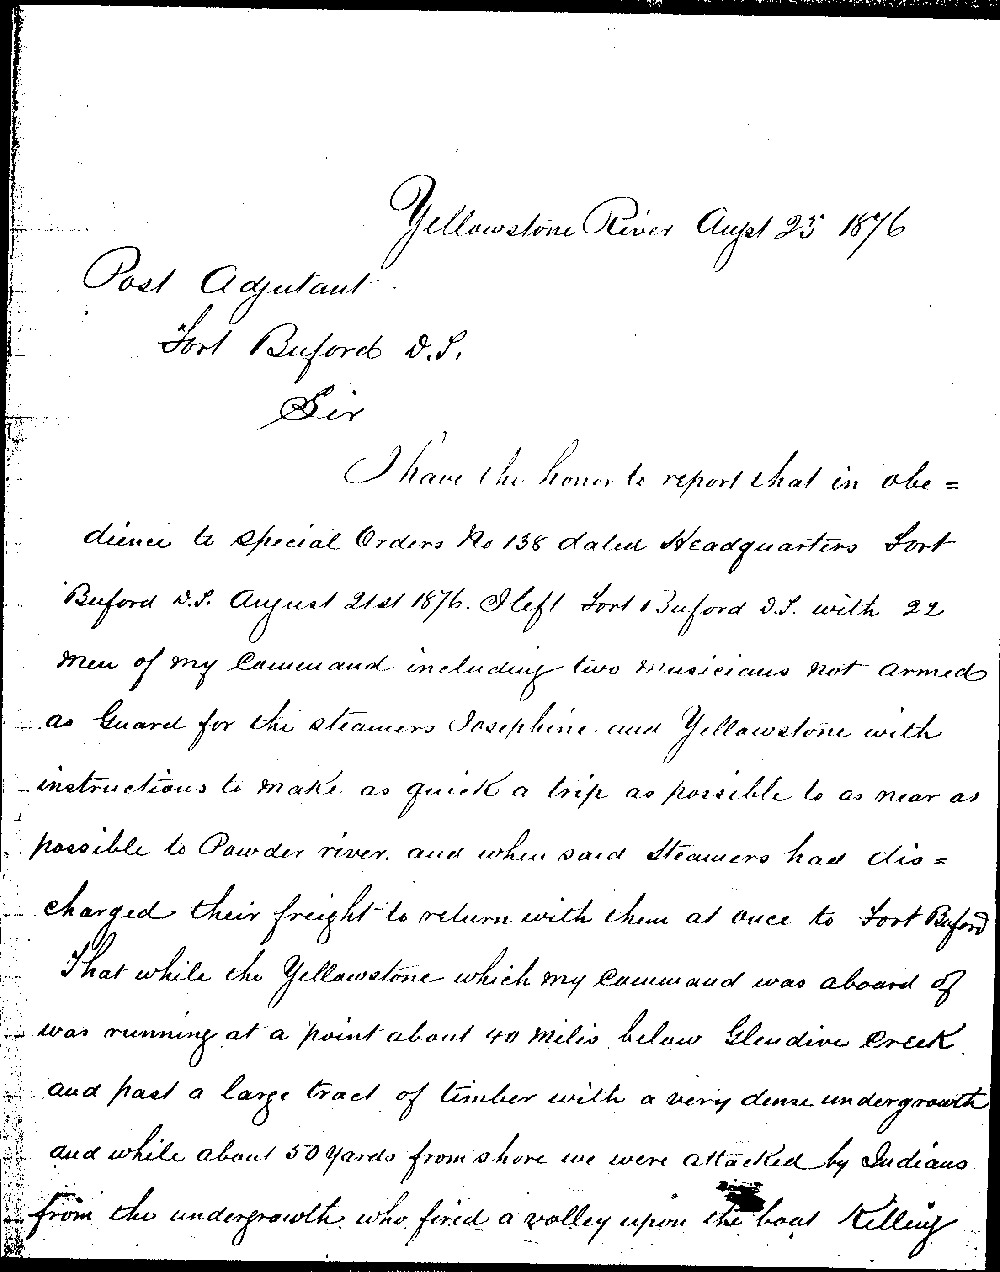 Yellowstone River Augst 25 1876
Post Adjutant
Fort Buford D.T.
Sir
I have the honor to report that in obe=
dience to special Orders No 138 dated Headquarters Fort
Buford D.T. August 21st 1876. I left Fort Buford D.T. with 22
men of my Command including two musicians not armed
as Guard for the steamers Josephine and Yellowstone with
instructions to make as quick a trip as possible to as near as
possible to Powder river. and when said Steamers had dis=
charged their freight to return with them at once to Fort Buford
That while the Yellowstone which my Command was aboard of
was running at a point about 40 miles below Glendive Creek
and past a large tract of timber with a very dense undergrowth
and while about 50 yards from shore we were attacked by Indians
from the undergrowth who fired a volley upon the boat Killing